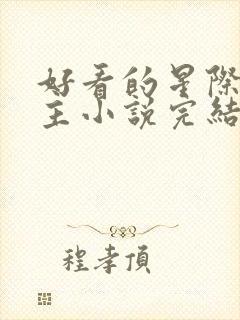 好看的星際
主小說完結
程孝頂